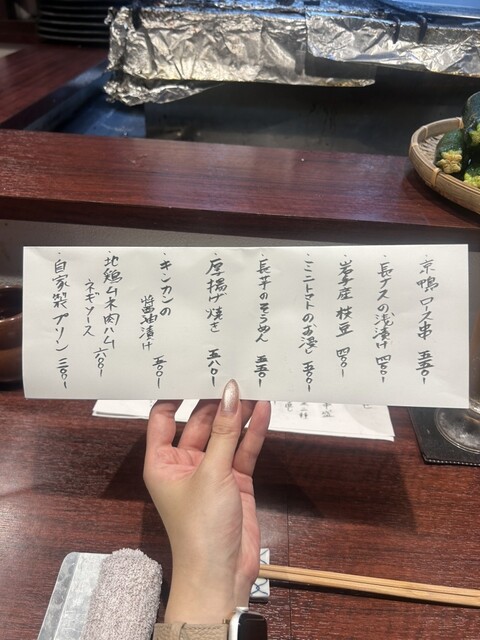 ・京鴨ロース串 五五〇ー
・長ナスの浅漬け 四〇〇ー
・岩手産 枝豆 四〇〇ー
・ミニトマトのお浸し 五〇〇ー
・長芋のそうめん 五五〇ー
・厚揚げ焼き 五八〇ー
・キンカンの
醤油漬け 五〇〇ー
・地鶏ムネ肉ハム
ネギソース 六〇〇ー
・自家製プリン 三〇〇ー